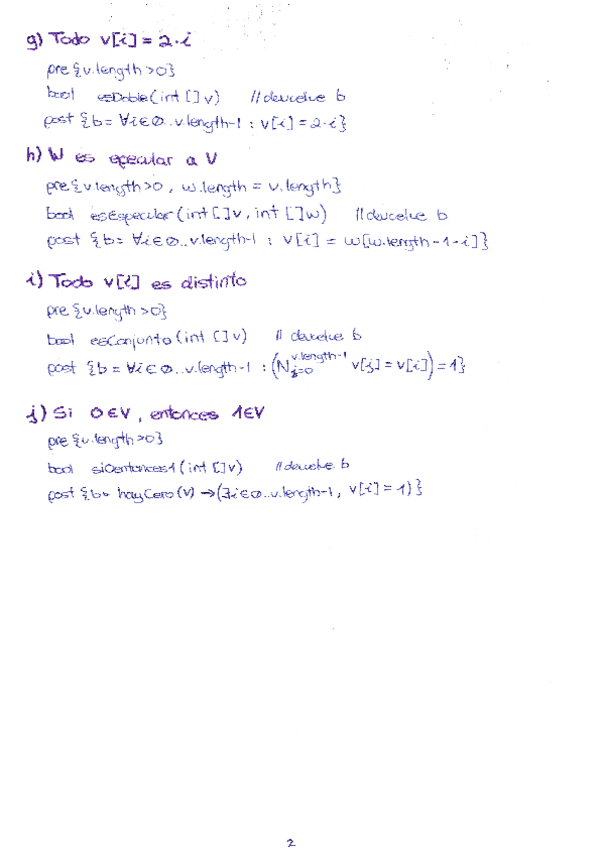 g) Todo v[i] = 2·i
pre {v.length >0}
bool esDoble (int []v) //devuelve b
post {b= ∀i∈0..v.length-1 : v[i] = 2·i}
h) W es epecular a V
pre {v.length>0, w.length = v.length}
bool esEspecular (int []v, int []w) //devuelve b
post {b= ∀i∈0..v.length-1 : v[i] = w[w.length-1-i]}
i) Todo v[i] es distinto
pre {v.length >0}
bool esConjunto (int []v) // devuelve b
post {b= ∀i∈0..v.length-1 : (N_{j=0}^{v.length-1} v[j] = v[i]) = 1}
j) Si 0∈V, entonces 1∈V
pre {v.length >0}
bool si0entonces1 (int []v) //devuelve b
post {b= hayCero(v) → (∃i∈0..v.length-1, v[i] = 1)}
2